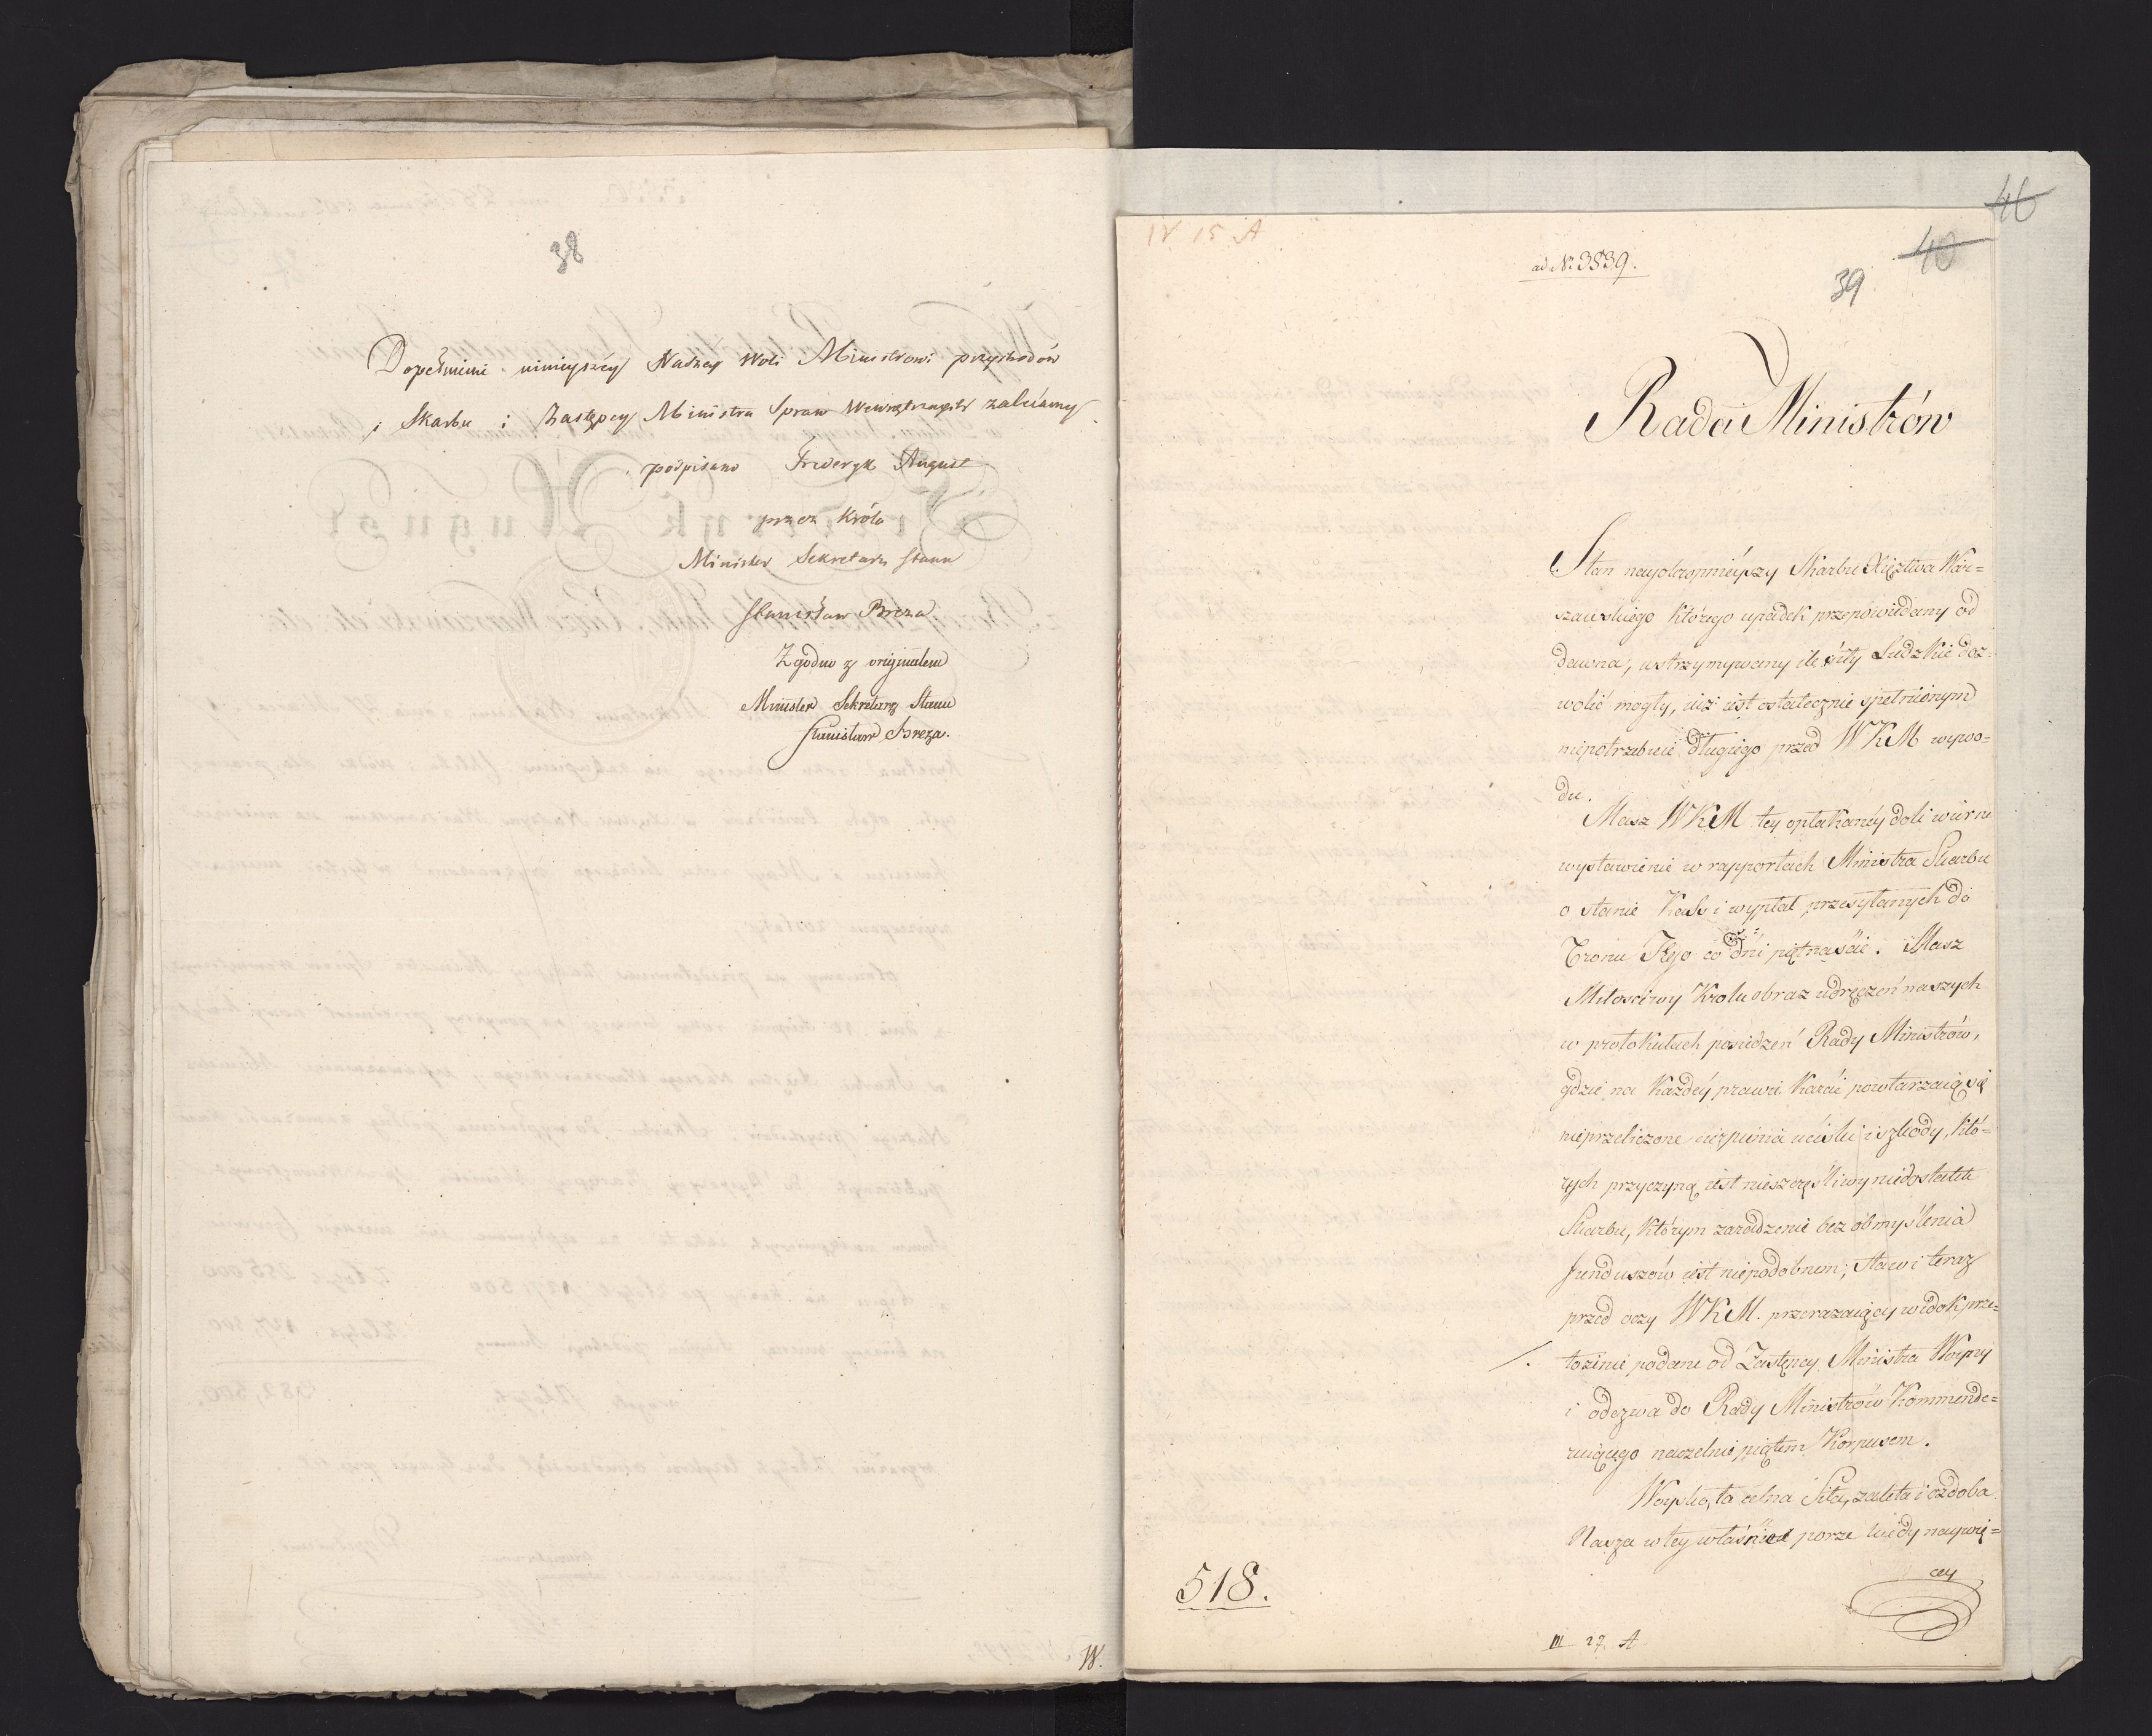 38
Dopełnienie ninieyszey Naszey Woli Ministrowi przychodów
i Skarbu i Zastępcy Ministra Spraw Wewnętrznych zalecamy
podpisano Frideryk August
przez Króla
Minister Sekretarz Stanu
Stanisław Breza
Zgodno z originałem
Minister Sekretarz Stanu
Stanisław Breza.
W.
46
IV 15 A
ad No 3839.
40
39
Rada Ministrów
Stan nayokropnieyszy Skarbu Xięztwa War=
szawskiego którego upadek przepowiedany od
dawna, wstrzymywany ile siły Ludzkie doz=
wolić mogły, iuż iest ostatecznie spełnionym
niepotrzebuie długiego przed WKM wywo=
du.
Masz WKM tey opłakanéy doli wierne
wystawienie w rapportach Ministra Skarbu
o stanie Kass i wypłat przesyłanych do
Tronu Jego co dni piętnaście. Masz
Miłościwy Królu obraz udręczeń naszych
w protokułach posiedzeń Rady Ministrów,
gdzie na każdéy prawie karcie powtarzaią się
nieprzeliczone cierpienia uciski i szkody, któ=
rych przyczyną iest nieszczęśliwy niedostatek
Skarbu, którym zaradzenie bez obmyślenia
funduszów iest niepodobnem; stawi teraz
przed oczy WKM. przerażaiący widok prze=
łożenie podane od Zastępcy Ministra Woyny
i odezwa do Rady Ministrów Kommende=
ruiącego naczelnie piątem Korpusem.
Woysko, ta celna Siła, zaleta i ozdoba
Nasza w tey właśnie porze kiedy naywię=
cey
518.
III 27 A